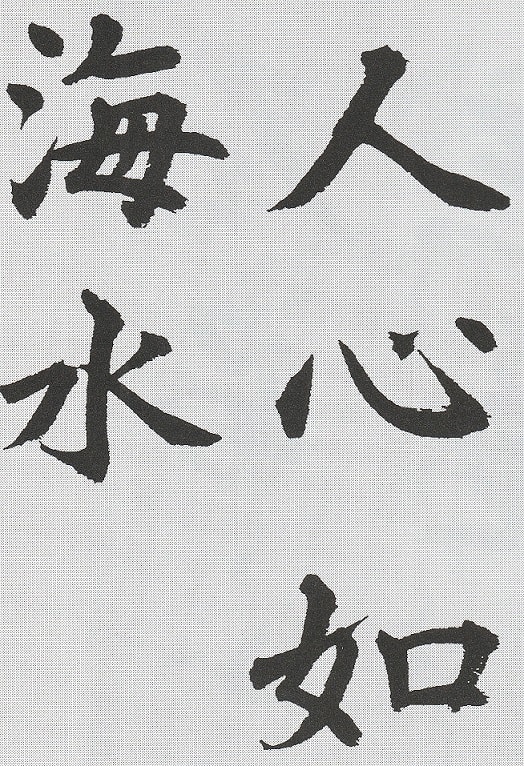 人心如
海水